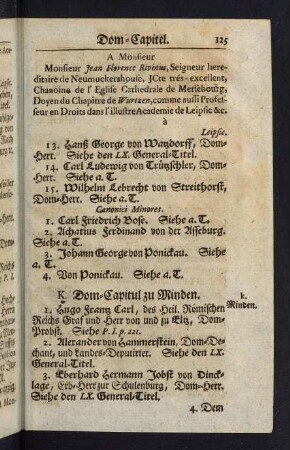 Dom-Capitel. 125
A Monsieur
Monsieur Jean Florence Rivinus, Seigneur here-
ditaire de Neumuckershouse, JCte trés-excellent,
Chanoine de l'Eglise Cathedrale de Mersebourg,
Doyen du Chapitre de Wurtzen, comme aussi Profes-
seur en Droits dans l'illustre Academie de Leipsic &c.
à
Leipsic.
13. Hanß George von Watzdorff, Dom-
Herr. Siehe den LX. General-Titel.
14. Carl Ludewig von Trützschler, Dom-
Herr. Siehe a. T.
15. Wilhelm Lebrecht von Streithorst,
Dom-Herr. Siehe a. T.
Canonici Minores.
1. Carl Friedrich Bose. Siehe a. T.
2. Achatius Ferdinand von der Asseburg.
Siehe a. T.
3. Johann George von Ponickau. Siehe
a. T.
4. Von Ponickau. Siehe a. T.
K. Dom-Capitul zu Minden.
k.
Minden.
1. Hugo Frantz Carl, des Heil. Römischen
Reichs Graf und Herr von und zu Eltz, Dom-
Probst. Siehe P. I. p. 221.
2. Alexander von Hammerstein, Dom-De-
chant, und Landes-Deputirter. Siehe den LX.
General-Titel.
3. Eberhard Hermann Jobst von Dinck-
lage, Erb-Herr zur Schulenburg, Dom-Herr.
Siehe den LX. General-Titel.
4. Dem